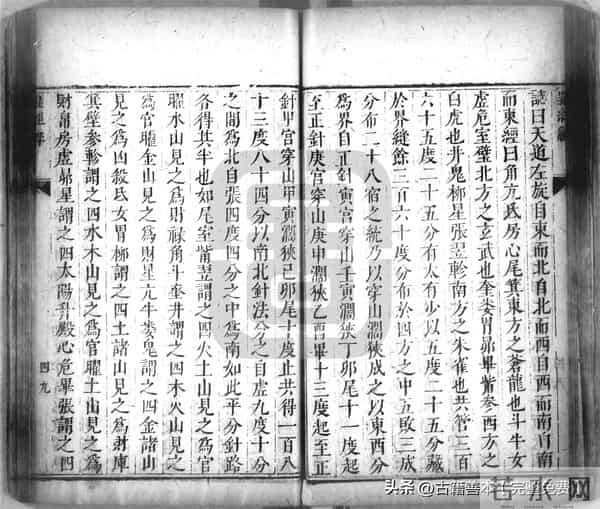 誌曰天道左旋自東而北自北而西自西而南自南
而東經曰角亢氐房心尾箕東方之蒼龍也斗牛女
虛危室璧北方之玄武也奎婁胃昴畢觜參西方之
白虎也井鬼柳星張翌軫南方之朱雀也共管三百
六十五度二十五分有太有少以五度二十五分藏
於界縫餘三百六十度分布於四方之中五
三成
分布二十八宿之統乃以穿山濶狹成之以東西分
為界自正針寅宮穿山壬寅濶狹丁卯尾十一度起
至正針庚宮穿山庚申濶狹乙酉畢十三度起至正
針甲宮穿山甲寅濶狹己卯尾十度止共得一百八
十三度八十四分以南北針法分之自虛九度十分
之間為北自張四度四分之中為南如此平分針路
各得其半也如尾室觜翌謂之四火土山見之為官
曜水山見之為財祿角斗奎井謂之四木火山見之
為官曜金山見之為財星亢牛婁鬼謂之四金諸山
見之為凶殺氐女胃柳謂之四土諸山見之為財庫
箕壁參軫謂之四水木山見之為官曜土山見之為
財帛房虛昴星謂之四太陽升殿心危畢張謂之四
四九
头条 @古籍善本